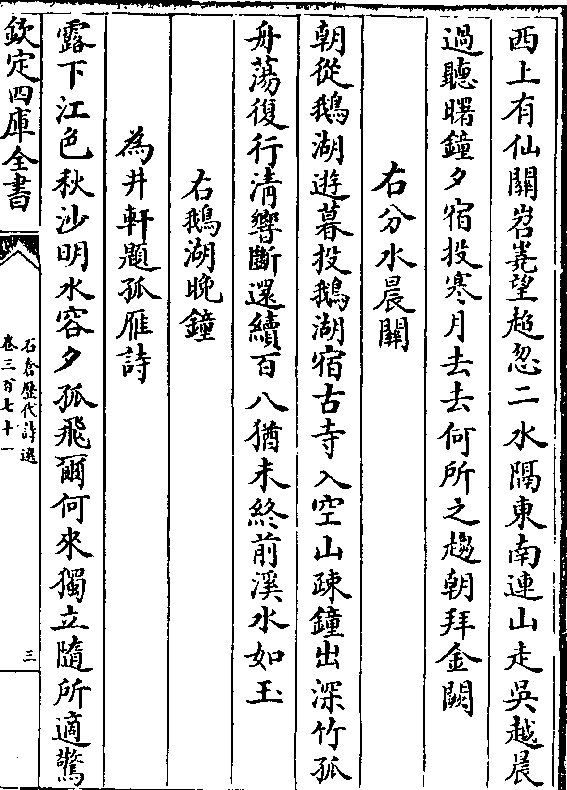 西上有仙關岧嶤望超忽二水隔東南連山走吳越晨
過聽曙鐘夕宿投寒月去去何所之趨朝拜金闕
右分水晨關
朝從鵝湖遊暮投鵝湖宿古寺入空山疎鐘出深竹孤
舟蕩復行清響斷還續百八猶未終前溪水如玉
右鵝湖晚鐘
為井軒題孤雁詩
露下江色秋沙明水容夕孤飛爾何來獨立隨所適驚
欽定四庫全書
石倉歷代詩選
卷三百七十一
三